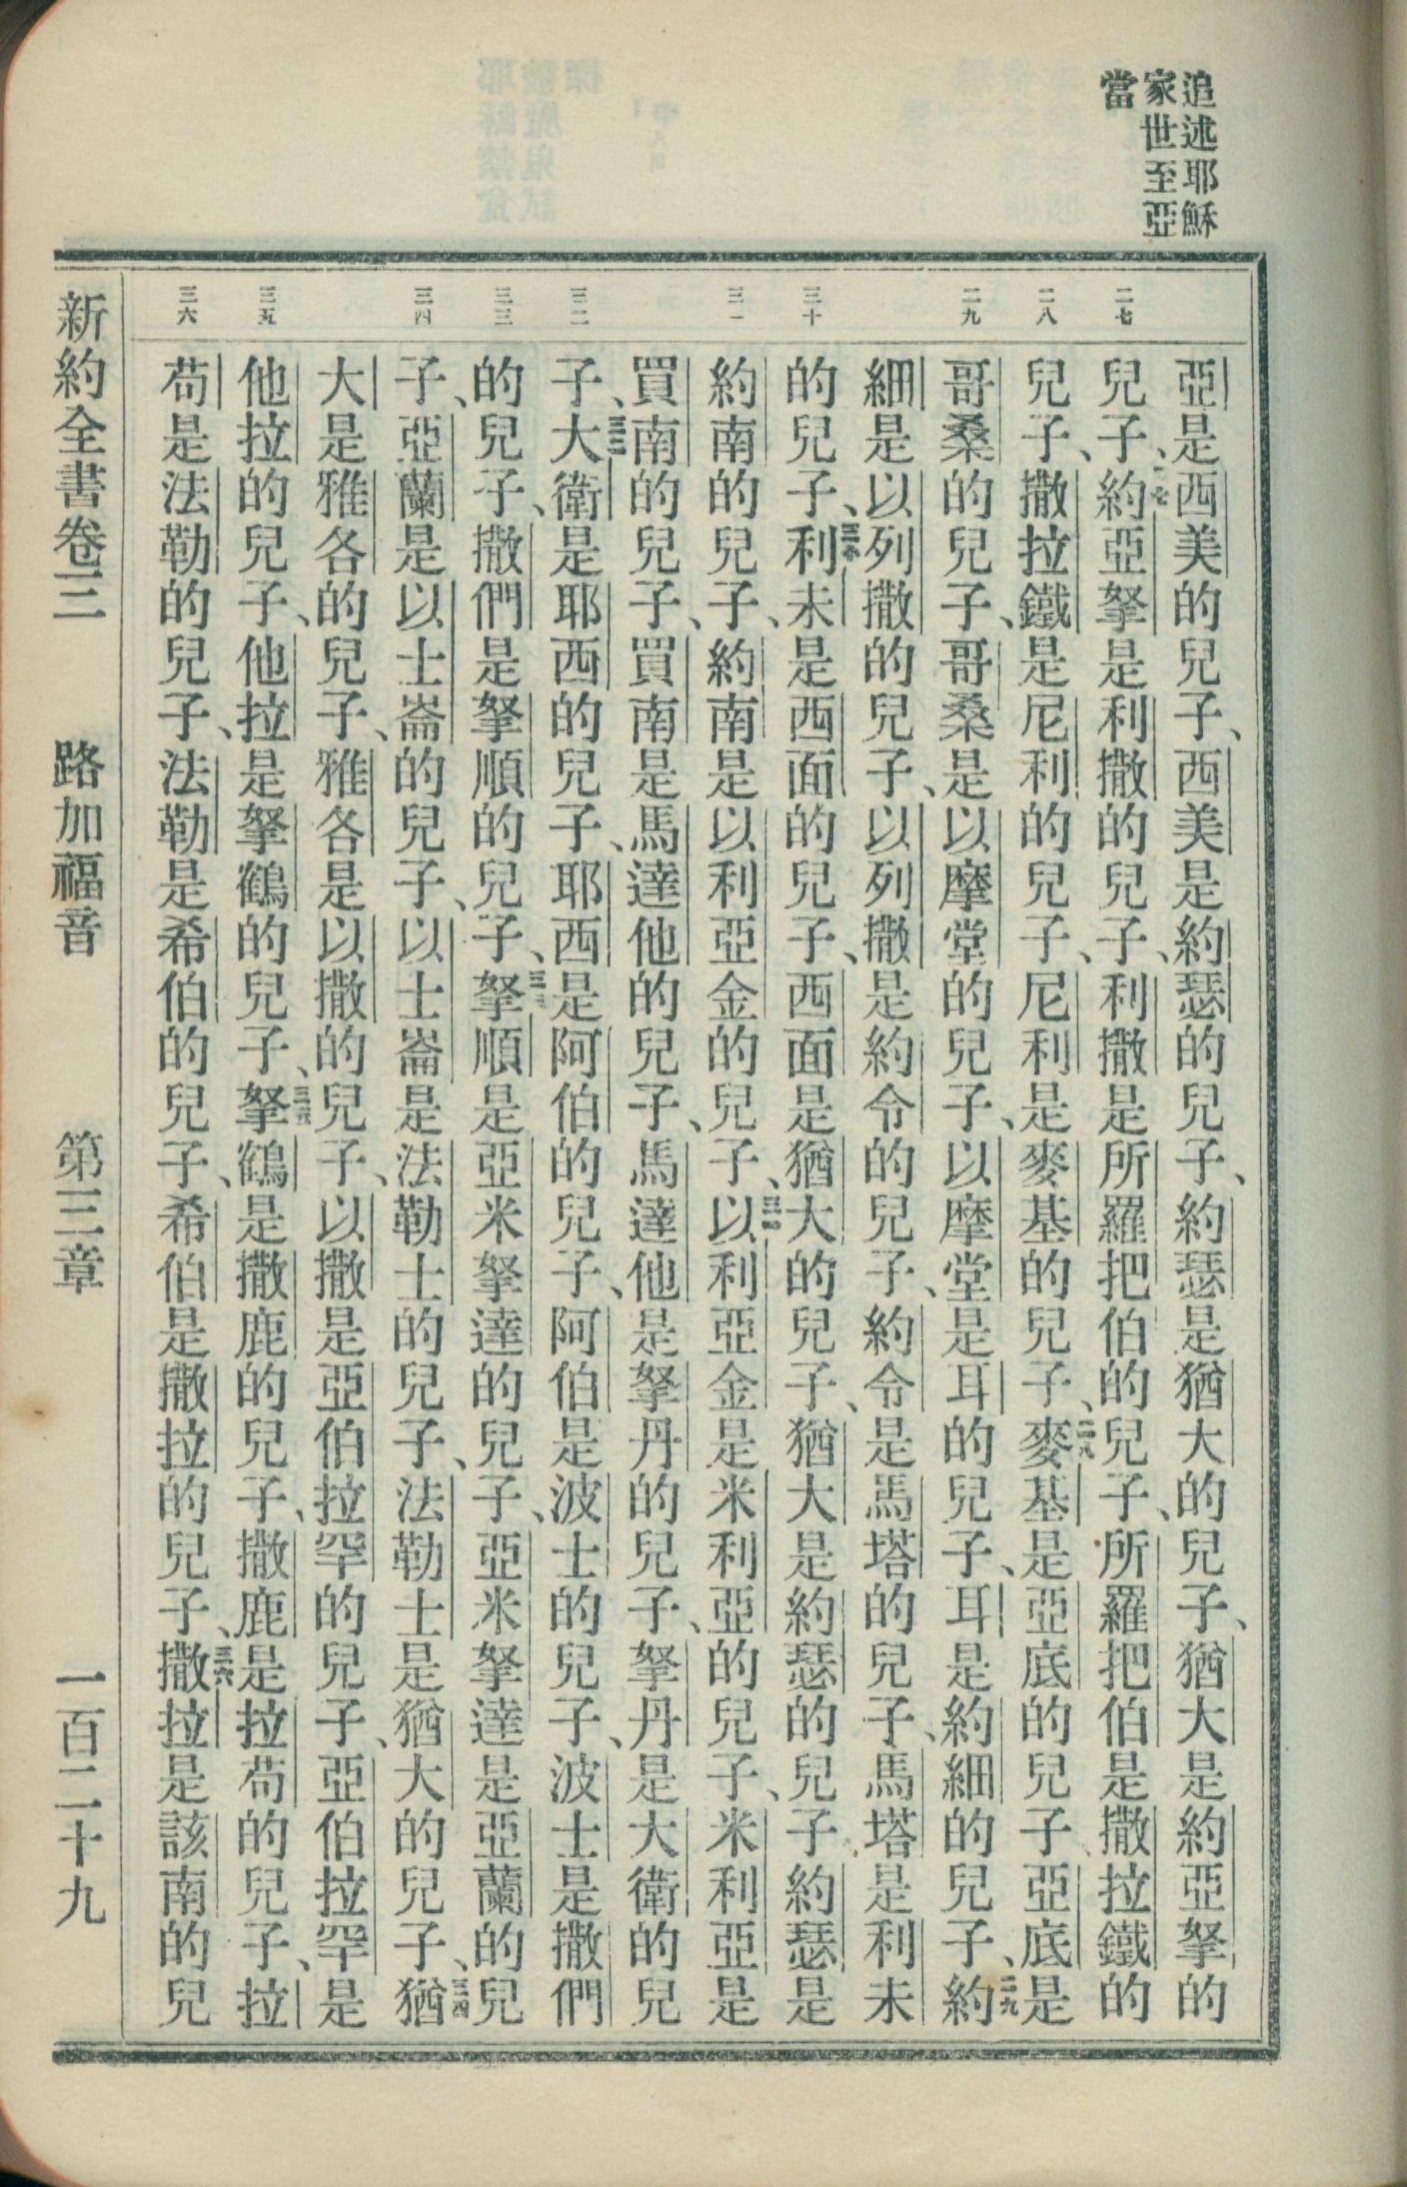 追述耶穌
家世至亞
當
二七
二八
二九
三十
三一
三二
三三
三四
三五
三六
亞是西美的兒子、西美是約瑟的兒子、約瑟是猶大的兒子、猶大是約亞拏的
兒子、二七約亞拏是利撒的兒子、利撒是所羅把伯的兒子、所羅把伯是撒拉鐵的
兒子、撒拉鐵是尼利的兒子、尼利是麥基的兒子、二八麥基是亞底的兒子、亞底是
哥桑的兒子、哥桑是以摩堂的兒子、以摩堂是耳的兒子、耳是約細的兒子、二九約
細是以列撒的兒子、以列撒是約令的兒子、約令是馬塔的兒子、馬塔是利未
的兒子、三十利未是西面的兒子、西面是猶大的兒子、猶大是約瑟的兒子、約瑟是
約南的兒子、約南是以利亞金的兒子、三一以利亞金是米利亞的兒子、米利亞是
買南的兒子、買南是馬達他的兒子、馬達他是拏丹的兒子、拏丹是大衛的兒
子、三二大衛是耶西的兒子、耶西是阿伯的兒子、阿伯是波士的兒子、波士是撒們
的兒子、撒們是拏順的兒子、三三拏順是亞米拏達的兒子、亞米拏達是亞蘭的兒
子、亞蘭是以士崙的兒子、以士崙是法勒士的兒子、法勒士是猶大的兒子、三四猶
大是雅各的兒子、雅各是以撒的兒子、以撒是亞伯拉罕的兒子、亞伯拉罕是
他拉的兒子、他拉是拏鶴的兒子、三五拏鶴是撒鹿的兒子、撒鹿是拉苟的兒子、拉
苟是法勒的兒子、法勒是希伯的兒子、希伯是撒拉的兒子、三六撒拉是該南的兒
新約全書卷三 路加福音 第三章 一百二十九